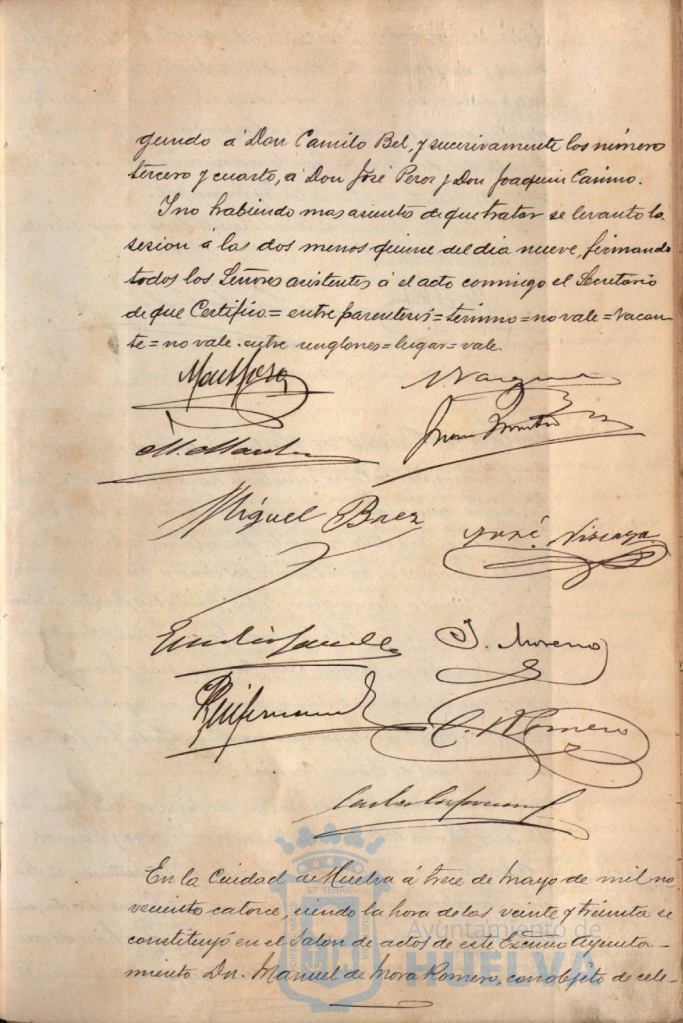 gundo á Don Camilo Bel, y sucesivamente los número
tercero y cuarto, á Don José Peroz y Don Joaquin Casimo.
Y no habiendo mas asunto de que tratar se levanto la
sesion á las dos menos quince del dia nueve, firmando
todos los Señores asistentes á el acto conmigo el Secretario
de que Certifico = entre parentesis = termino = no vale = Vacan-
te = no vale. entre renglones = lugar = vale.
Miguel Baez
José Vizcaya
J. Moreno
C. Romero
En la Cuidad de Huelva á trece de mayo de mil no
vecientos catorce, siendo la hora de las veinte y treinta se
constituyó en el Salon de actos de este Excmo Ayunta-
miento Dn. Manuel de Mora Romero, con objeto de cele-
Ayuntamiento de
HUELVA